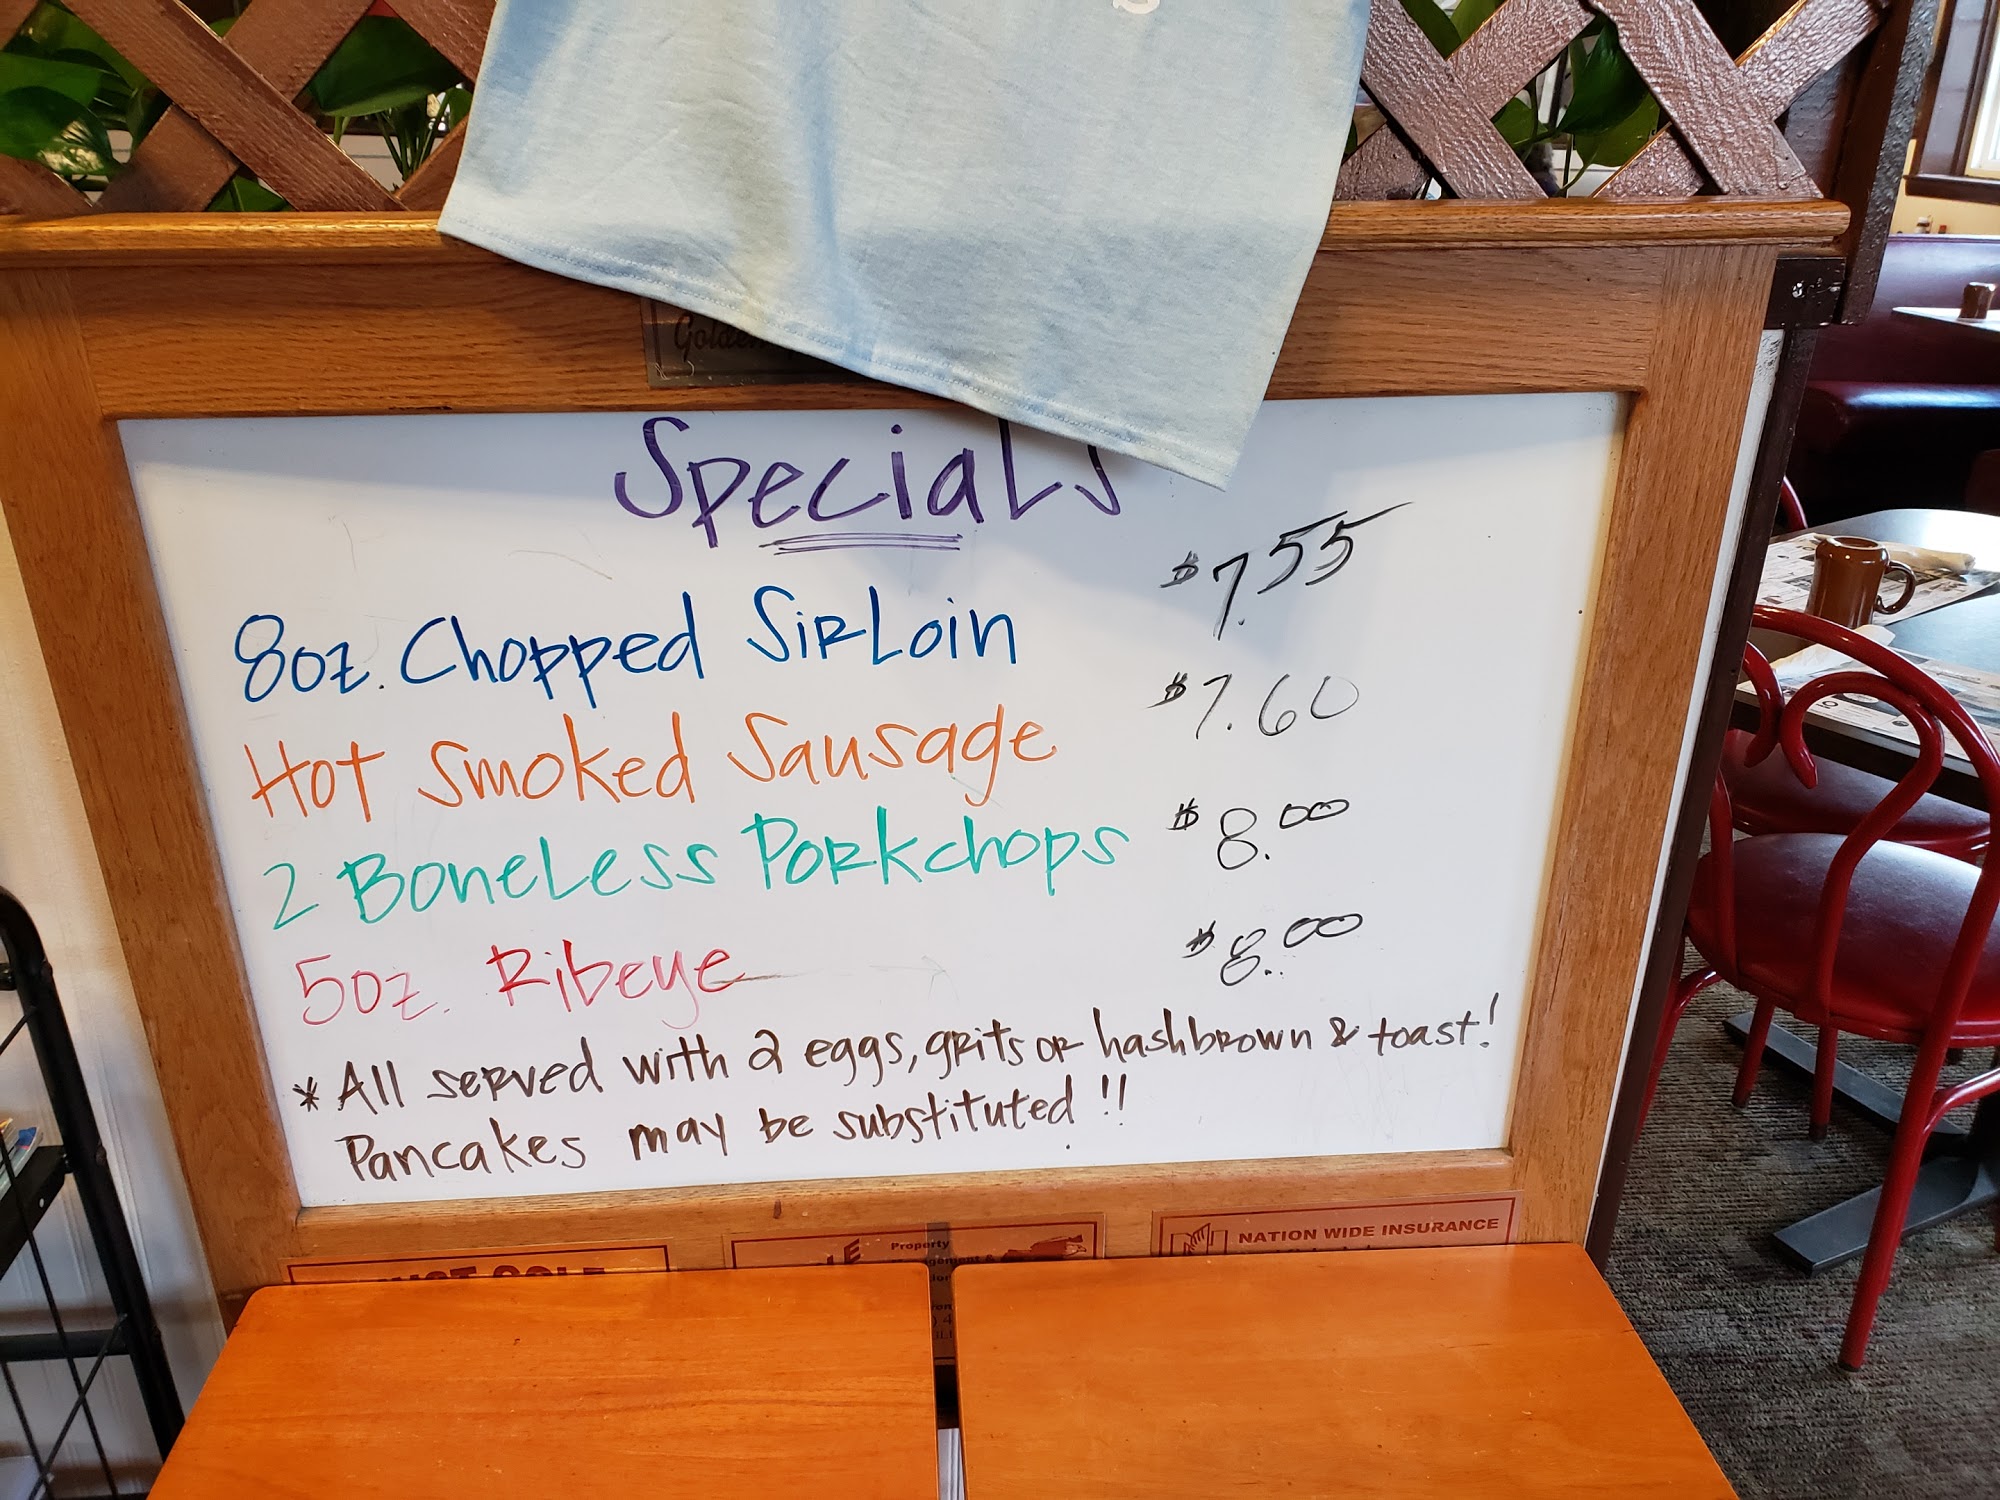 Golden
Specials
8oz. Chopped Sirloin $7.55
Hot Smoked Sausage $7.60
2 Boneless Porkchops $8.00
5oz. Ribeye $8.00
* All served with 2 eggs, grits or hashbrown & toast!
Pancakes may be substituted!!
Property
NATION WIDE INSURANCE